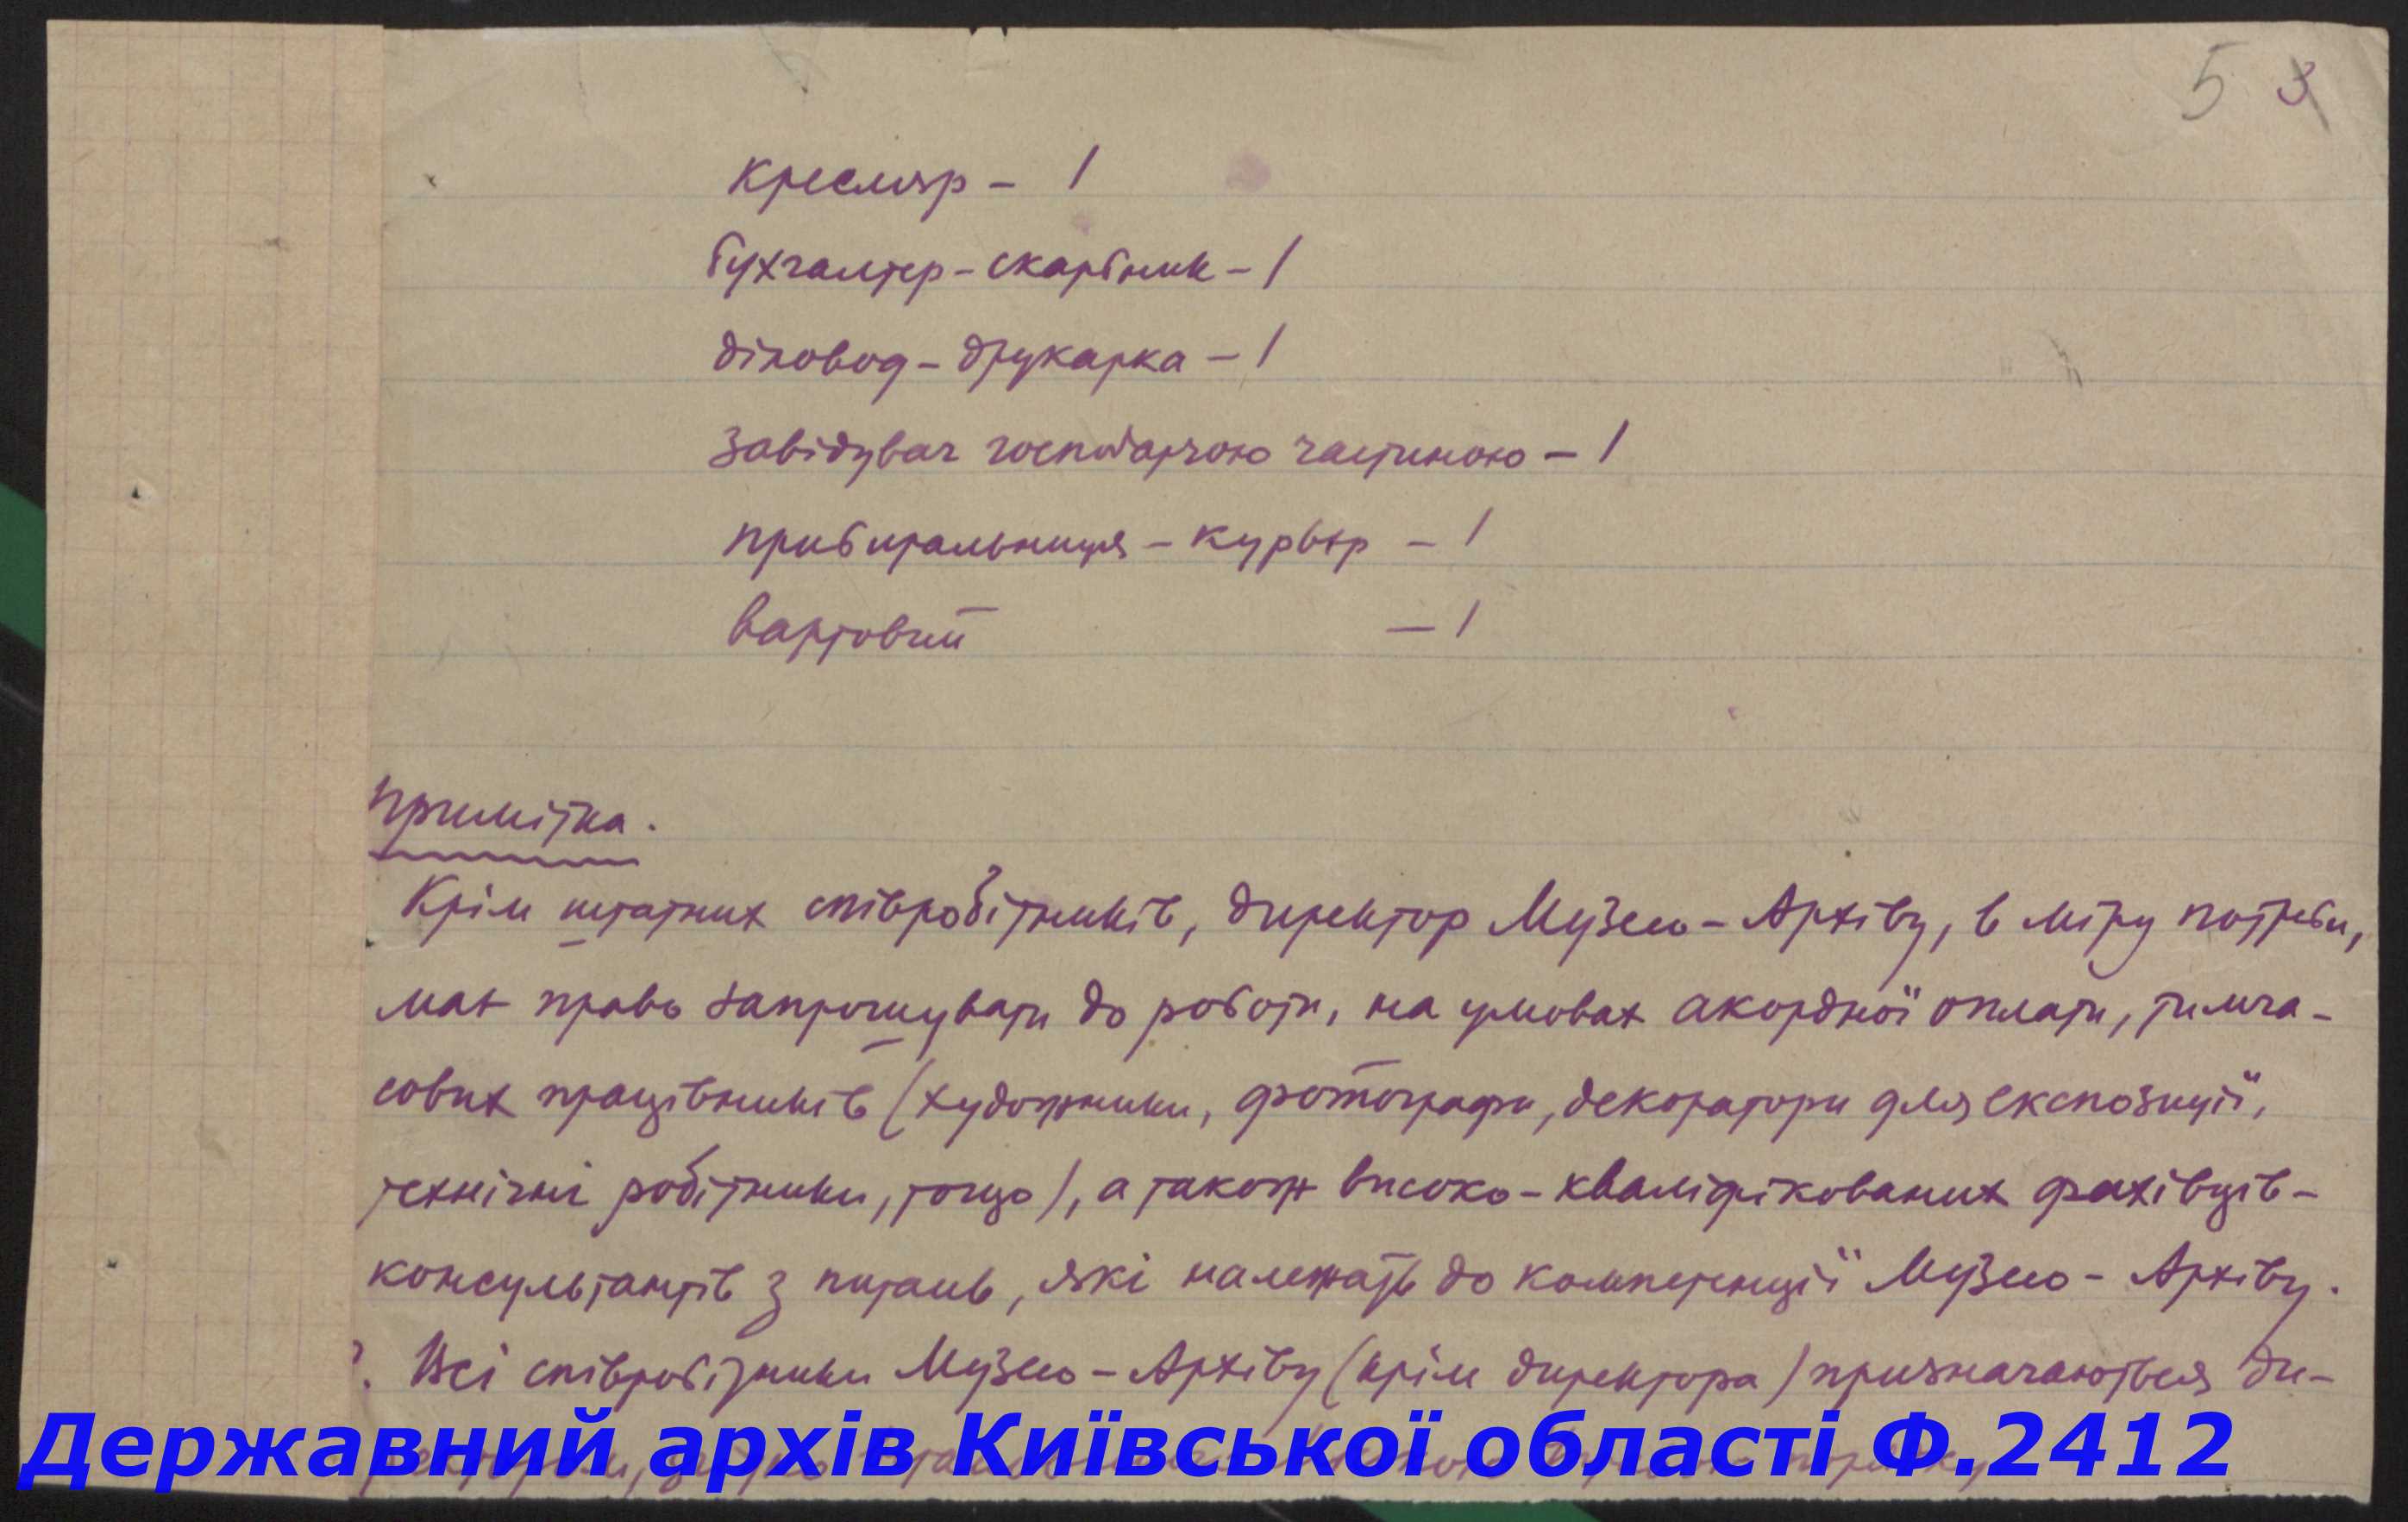 5 3
кресляр – 1
бухгалтер – скарбник – 1
діловод – друкарка – 1
завідувач господарчою частиною – 1
прибиральниця – курьєр – 1
вартовий – 1
Примітка.
Крім штатних співробітників, директор Музею – Архіву, в міру потреби,
має право запрошувати до роботи, на умовах акордної оплати, тимча-
сових працівників (художники, фотографи, декоратори для експозиції,
технічні робітники, тощо), а також високо – кваліфікованих фахівців –
консультантів з питань, які належать до компетенції Музею – Архіву.
Всі співробітники Музею – Архіву (крім директора) призначаються ди-
Державний архів Київської області Ф.2412